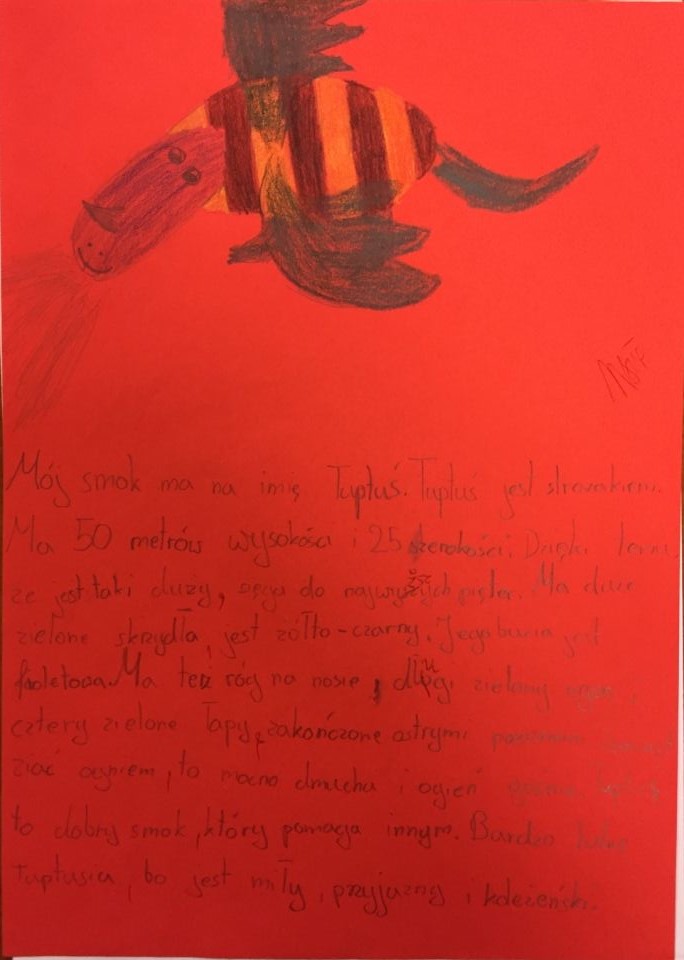 Mój smok ma na imię Tuptuś. Tuptuś jest strażakiem.
Ma 50 metrów wysokości i 25 szerokości. Dzięki temu,
że jest taki duży, sięga do najwyższych pięter. Ma duże
zielone skrzydła, jest żółto-czarny. Jego buzia jest
fioletowa. Ma też róg na nosie, długi zielony ogon,
cztery zielone łapy, zakończone ostrymi pazurami
ziać ogniem, to mocno dmucha i ogień
to dobry smok, który pomaga innym. Bardzo lubię
Tuptusia, bo jest miły, przyjazny i koleżeński.